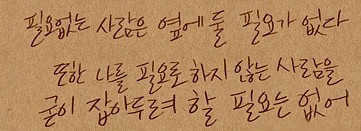 필요없는 사람은 옆에 둘 필요가 없다
또한 나를 필요로 하지 않는 사람을
굳이 잡아두려 할 필요는 없어